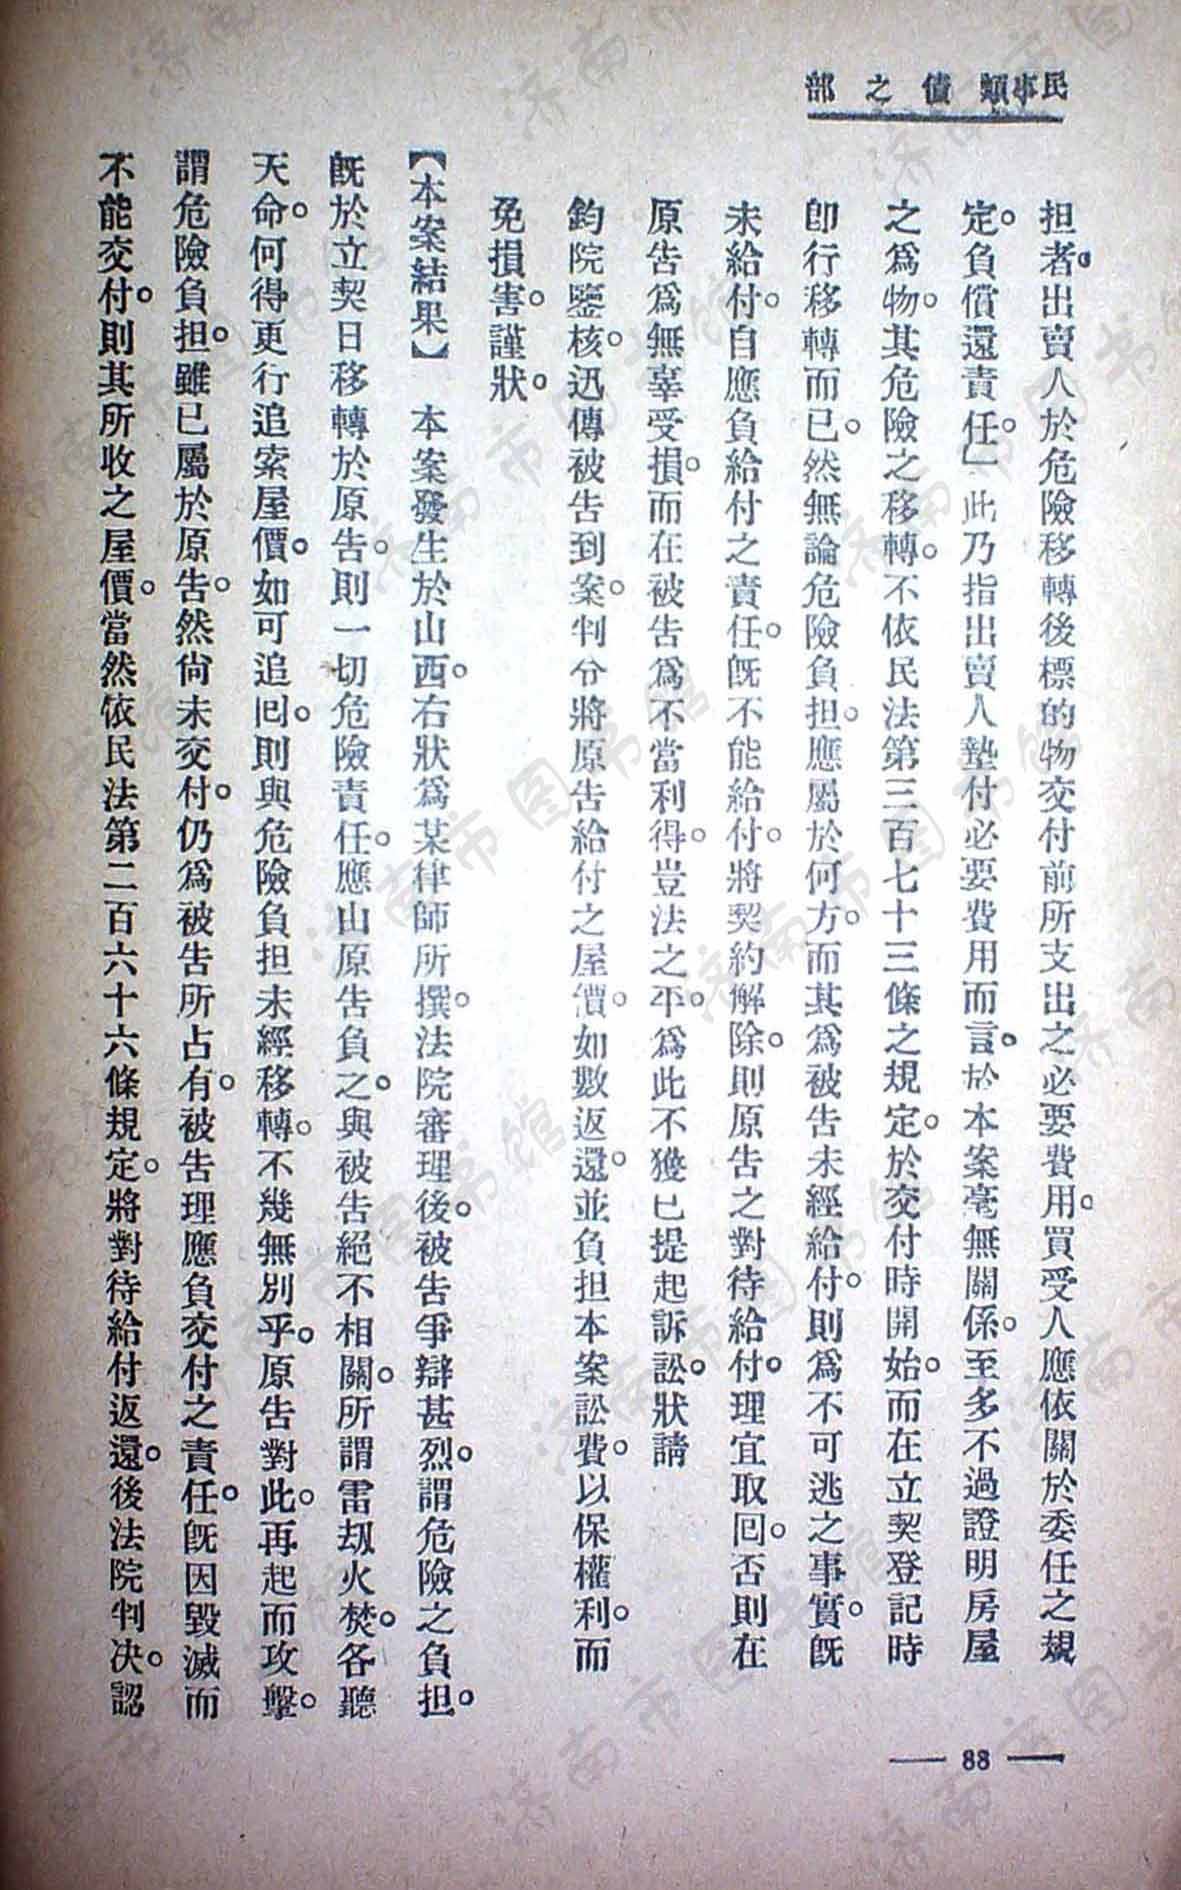 民事類債之部
担者。出賣人於危險移轉後標的物交付前所支出之必要費用。買受人應依關於委任之規
定。負償還責任。」此乃指出賣人墊付必要費用而言。於本案毫無關係。至多不過證明房屋
之爲物。其危險之移轉。不依民法第三百七十三條之規定。於交付時開始。而在立契登記時
卽行移轉而已。然無論危險負担。應屬於何方。而其爲被告未經給付。則爲不可逃之事實。旣
未給付。自應負給付之責任。旣不能給付。將契約解除。則原告之對待給付。理宜取回。否則在
原告爲無辜受損。而在被告爲不當利得。豈法之平。爲此不獲已提起訴訟。狀請
鈞院鑒核。迅傳被告到案。判令將原告給付之屋價。如數返還。並負担本案訟費。以保權利。而
免損害。謹狀。
【本案結果】　本案發生於山西。右狀爲某律師所撰。法院審理後。被告爭辯甚烈。謂危險之負担。
旣於立契日移轉於原告。則一切危險責任。應由原告負之。與被告絕不相關。所謂雷劫火焚。各聽
天命。何得更行追索屋價。如可追回。則與危險負担未經移轉。不幾無別乎。原告對此。再起而攻擊。
謂危險負担。雖已屬於原告。然尙未交付。仍爲被告所占有。被告理應負交付之責任。旣因毀滅而
不能交付。則其所收之屋價。當然依民法第二百六十六條規定。將對待給付返還。後法院判决。認
— 88 —
济南市图书馆